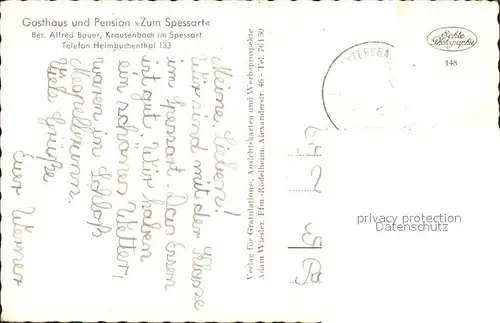 Gasthaus und Pension »Zum Spessart«
Bes. Alfred Bauer, Krausenbach im Spessart
Telefon Heimbuchenthal 133
Meine Lieben!
Wir sind mit der Klasse
im Spessart. Das Essen
ist gut. Wir haben
ein schönes Wetter,
waren im Schloß
Mespelbrunn.
Viele Grüße
Euer Werner
Verlag für Gratulations-, Ansichtskarten und Werbeprospekte
Adam Wiesler, Ffm.-Rödelheim, Alexanderstr. 46 - Tel. 76130
Echte
Photographie
148
privacy protection
Datenschutz